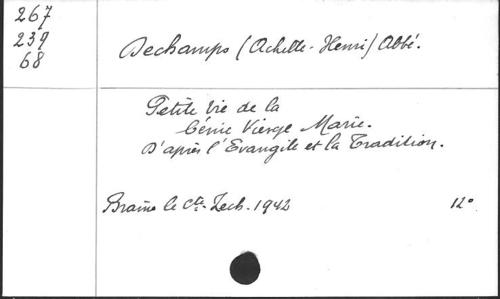 267
239
68
Dechamps (Achille-Henri) Abbé.
Petite Vie de la
Bénie Vierge Marie.
D'après l'Evangile et la Tradition.
Braine le Cte. Zech. 1942 12°